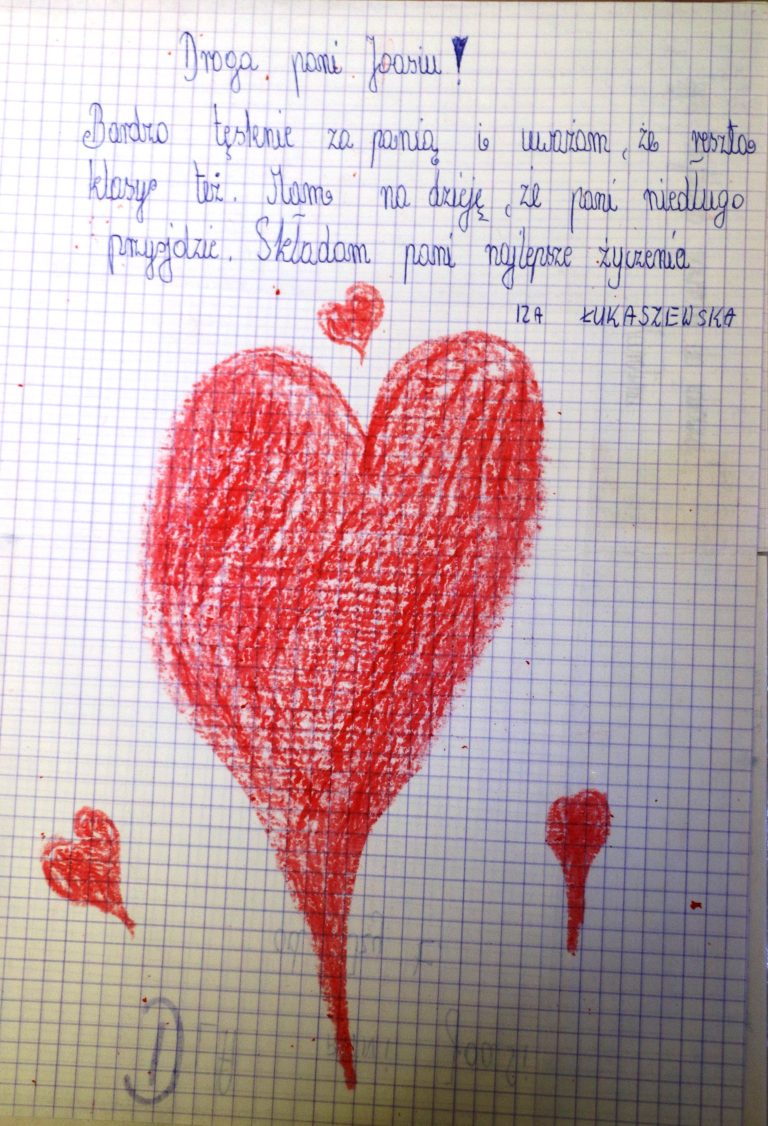 Droga pani Joasiu!
Bardzo tęsknie za panią i uważam, że reszta
klasy też. Mam na dzieję, że pani niedługo
przyjdzie. Składam pani najlepsze życzenia
IZA ŁUKASZEWSKA